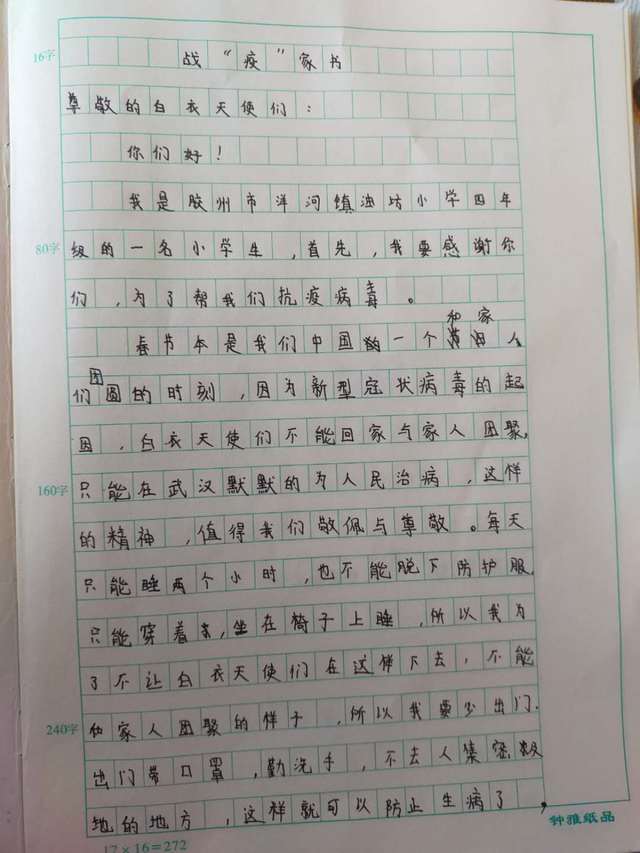 战“疫”家书
16字
尊敬的白衣天使们：
你们好！
我是胶州市洋河镇油坊小学四年
80字
级的一名小学生，首先，我要感谢你
们，为了帮我们抗疫病毒。
和家
春节本是我们中国的一个人
团
们圆的时刻，因为新型冠状病毒的起
因，白衣天使们不能回家与家人团聚，
160字
只能在武汉默默的为人民治病，这样
的精神，值得我们敬佩与尊敬。每天
只能睡两个小时，也不能脱下防护服，
只能穿着，坐在椅子上睡，所以我为
了不让白衣天使们在这样下去，不能
240字
和家人团聚的样子，所以我要少出门，
出门带口罩，勤洗手，不去人集密
地的地方，这样就可以防止生病了，
钟雅纸品
17×16=272